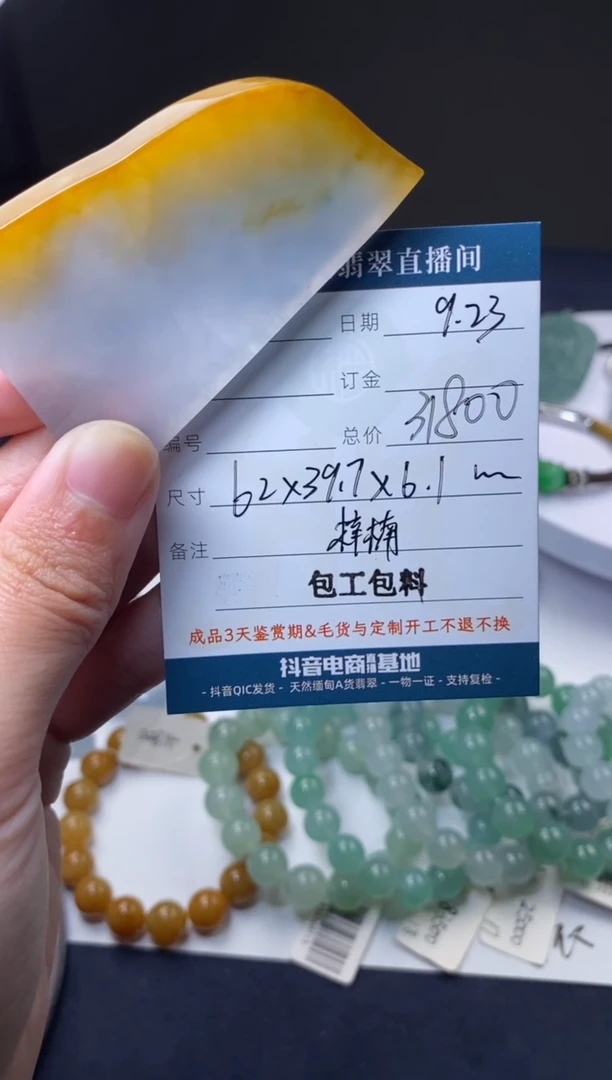 翡翠直播间
日期 9.23
订金
编号 总价 31800
尺寸 62x39.7x6.1 m
备注 梓楠
包工包料
成品3天鉴赏期&毛货与定制开工不退不换
抖音电商直播基地
- 抖音QIC发货 - 天然缅甸A货翡翠 - 一物一证 - 支持复检 -